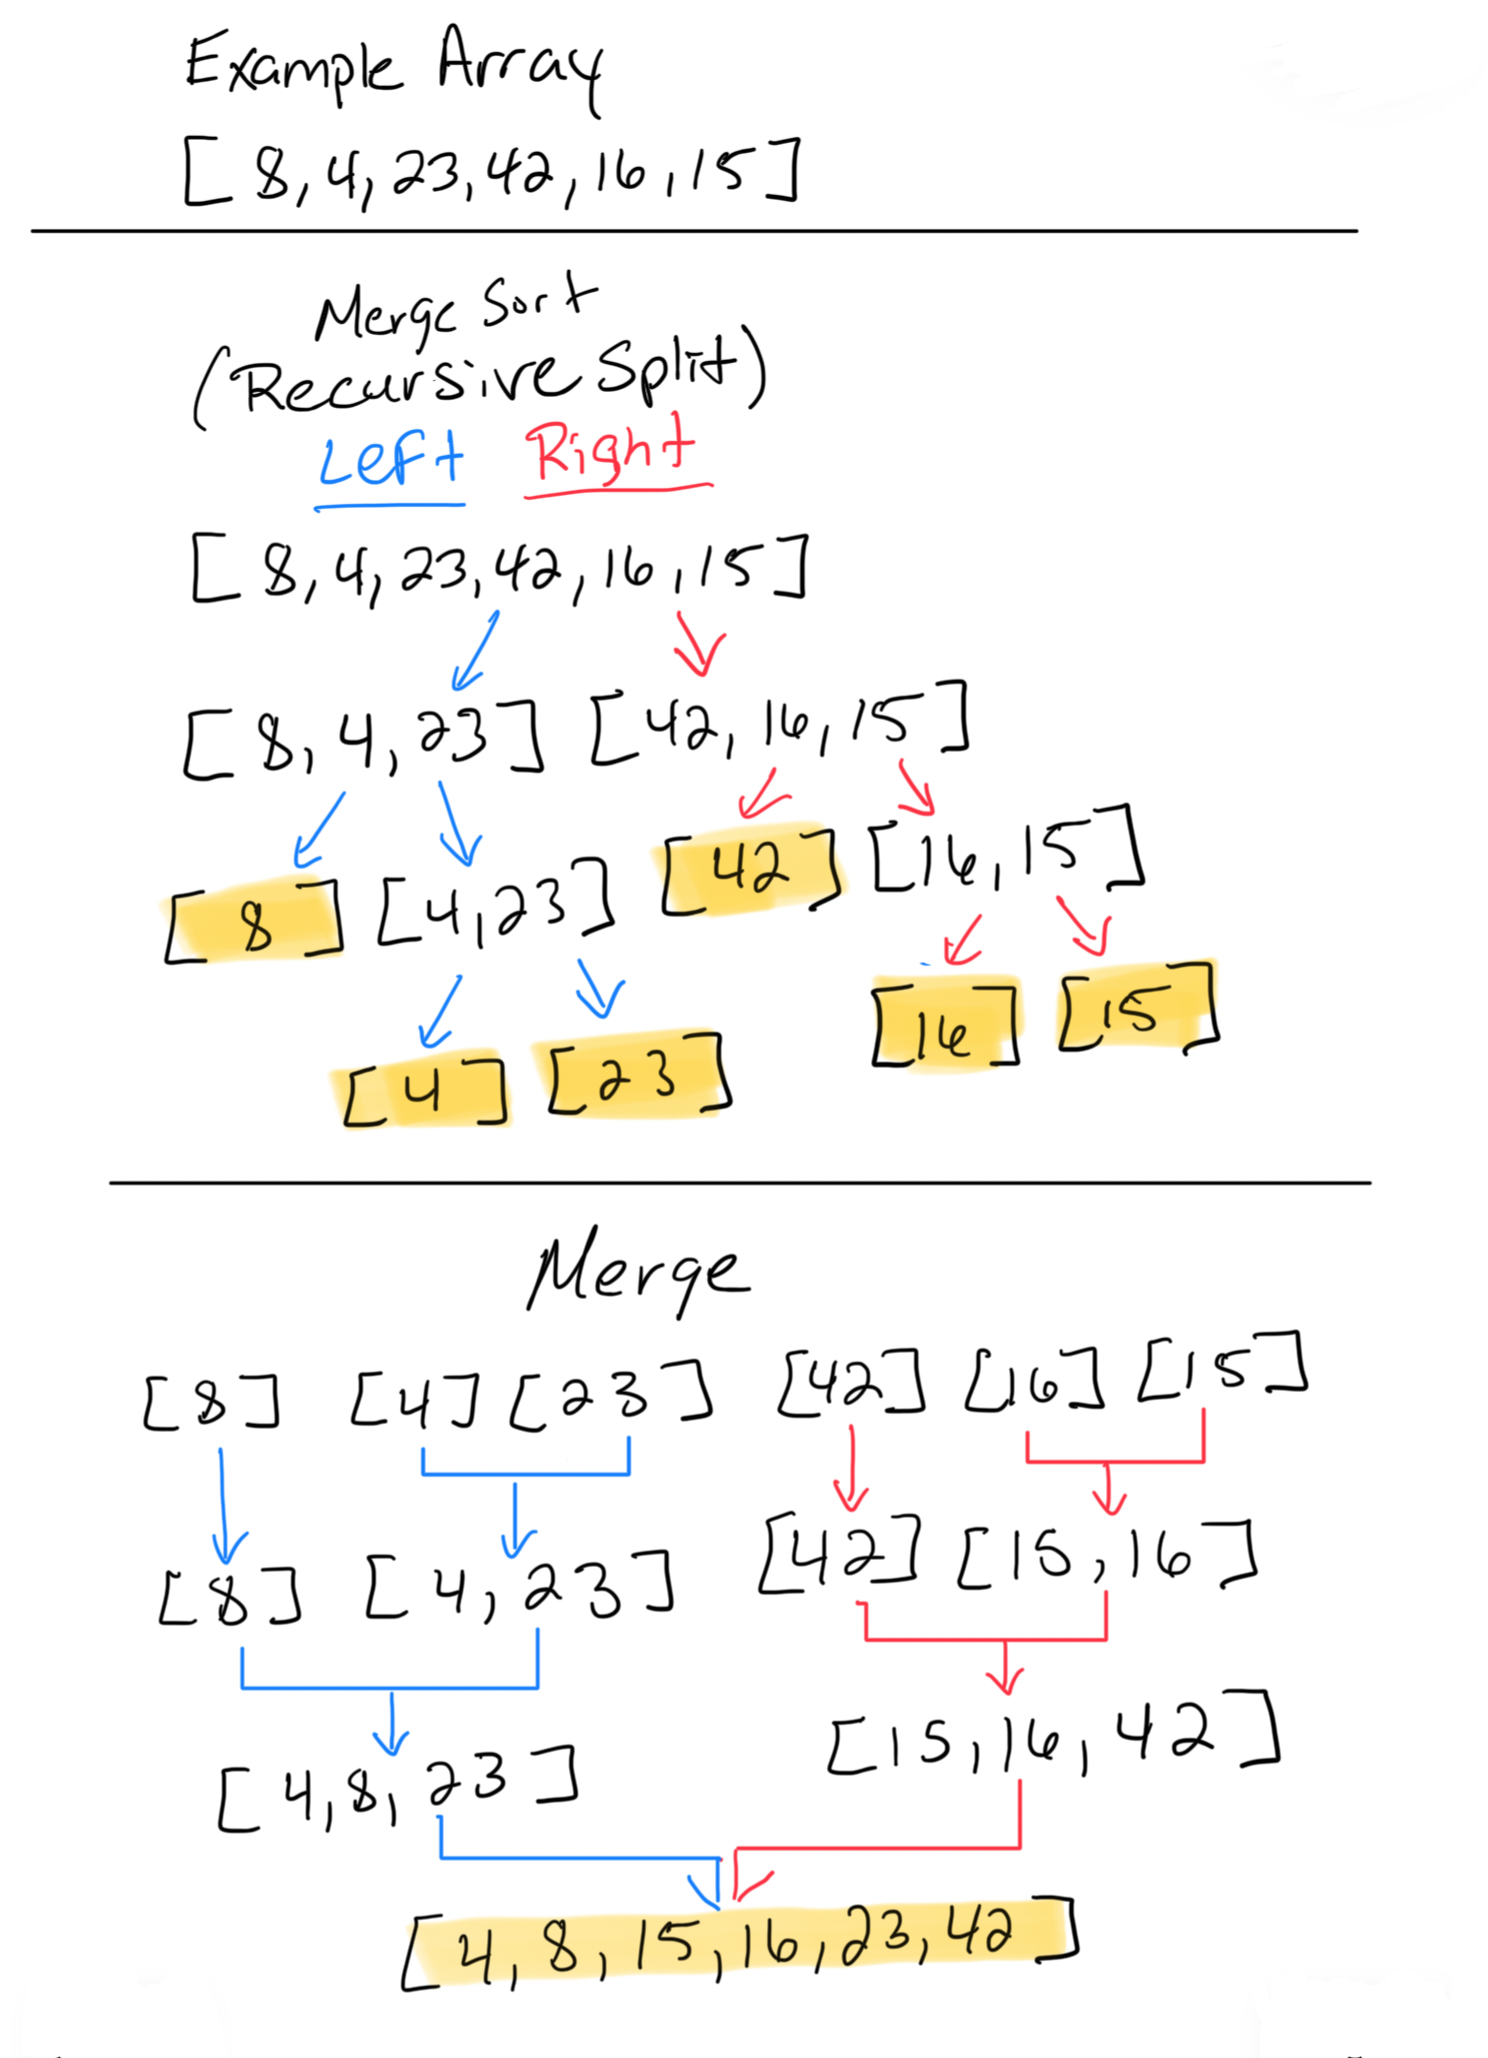 Example Array
[ 8, 4, 23, 42, 16, 15 ]
Merge Sort
(Recursive Split)
Left Right
[ 8, 4, 23, 42, 16, 15 ]
[ 8, 4, 23 ] [ 42, 16, 15 ]
[ 8 ] [ 4, 23 ] [ 42 ] [ 16, 15 ]
[ 4 ] [ 23 ] [ 16 ] [ 15 ]
Merge
[ 8 ] [ 4 ] [ 23 ] [ 42 ] [ 16 ] [ 15 ]
[ 8 ] [ 4, 23 ] [ 42 ] [ 15, 16 ]
[ 4, 8, 23 ] [ 15, 16, 42 ]
[ 4, 8, 15, 16, 23, 42 ]